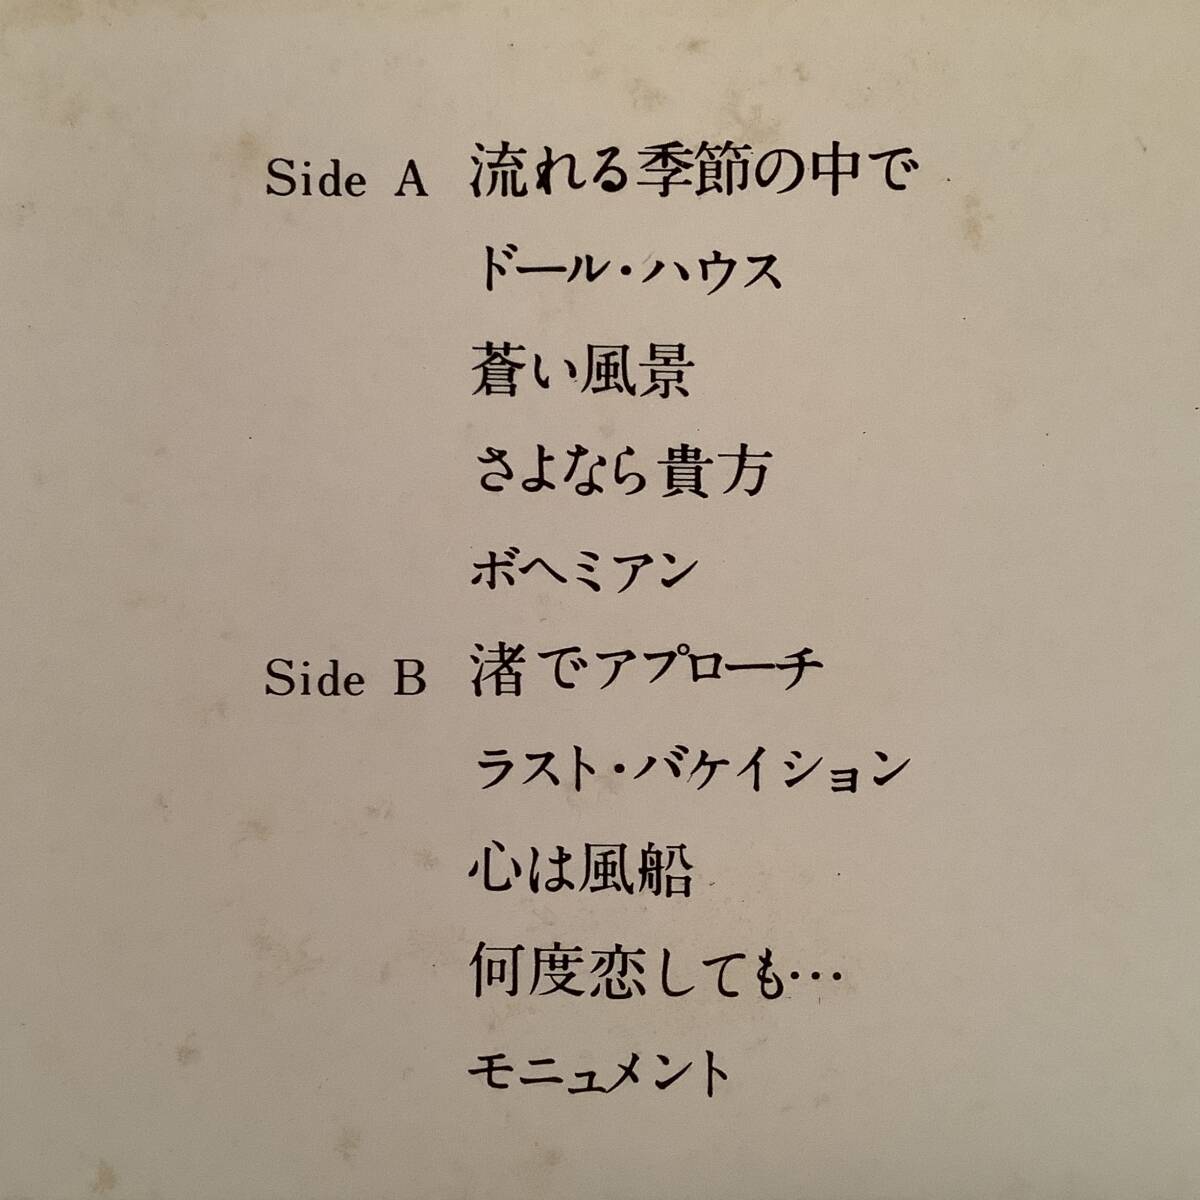 Side A 流れる季節の中で
ドール・ハウス
蒼い風景
さよなら貴方
ボヘミアン
Side B 渚でアプローチ
ラスト・バケイション
心は風船
何度恋しても…
モニュメント